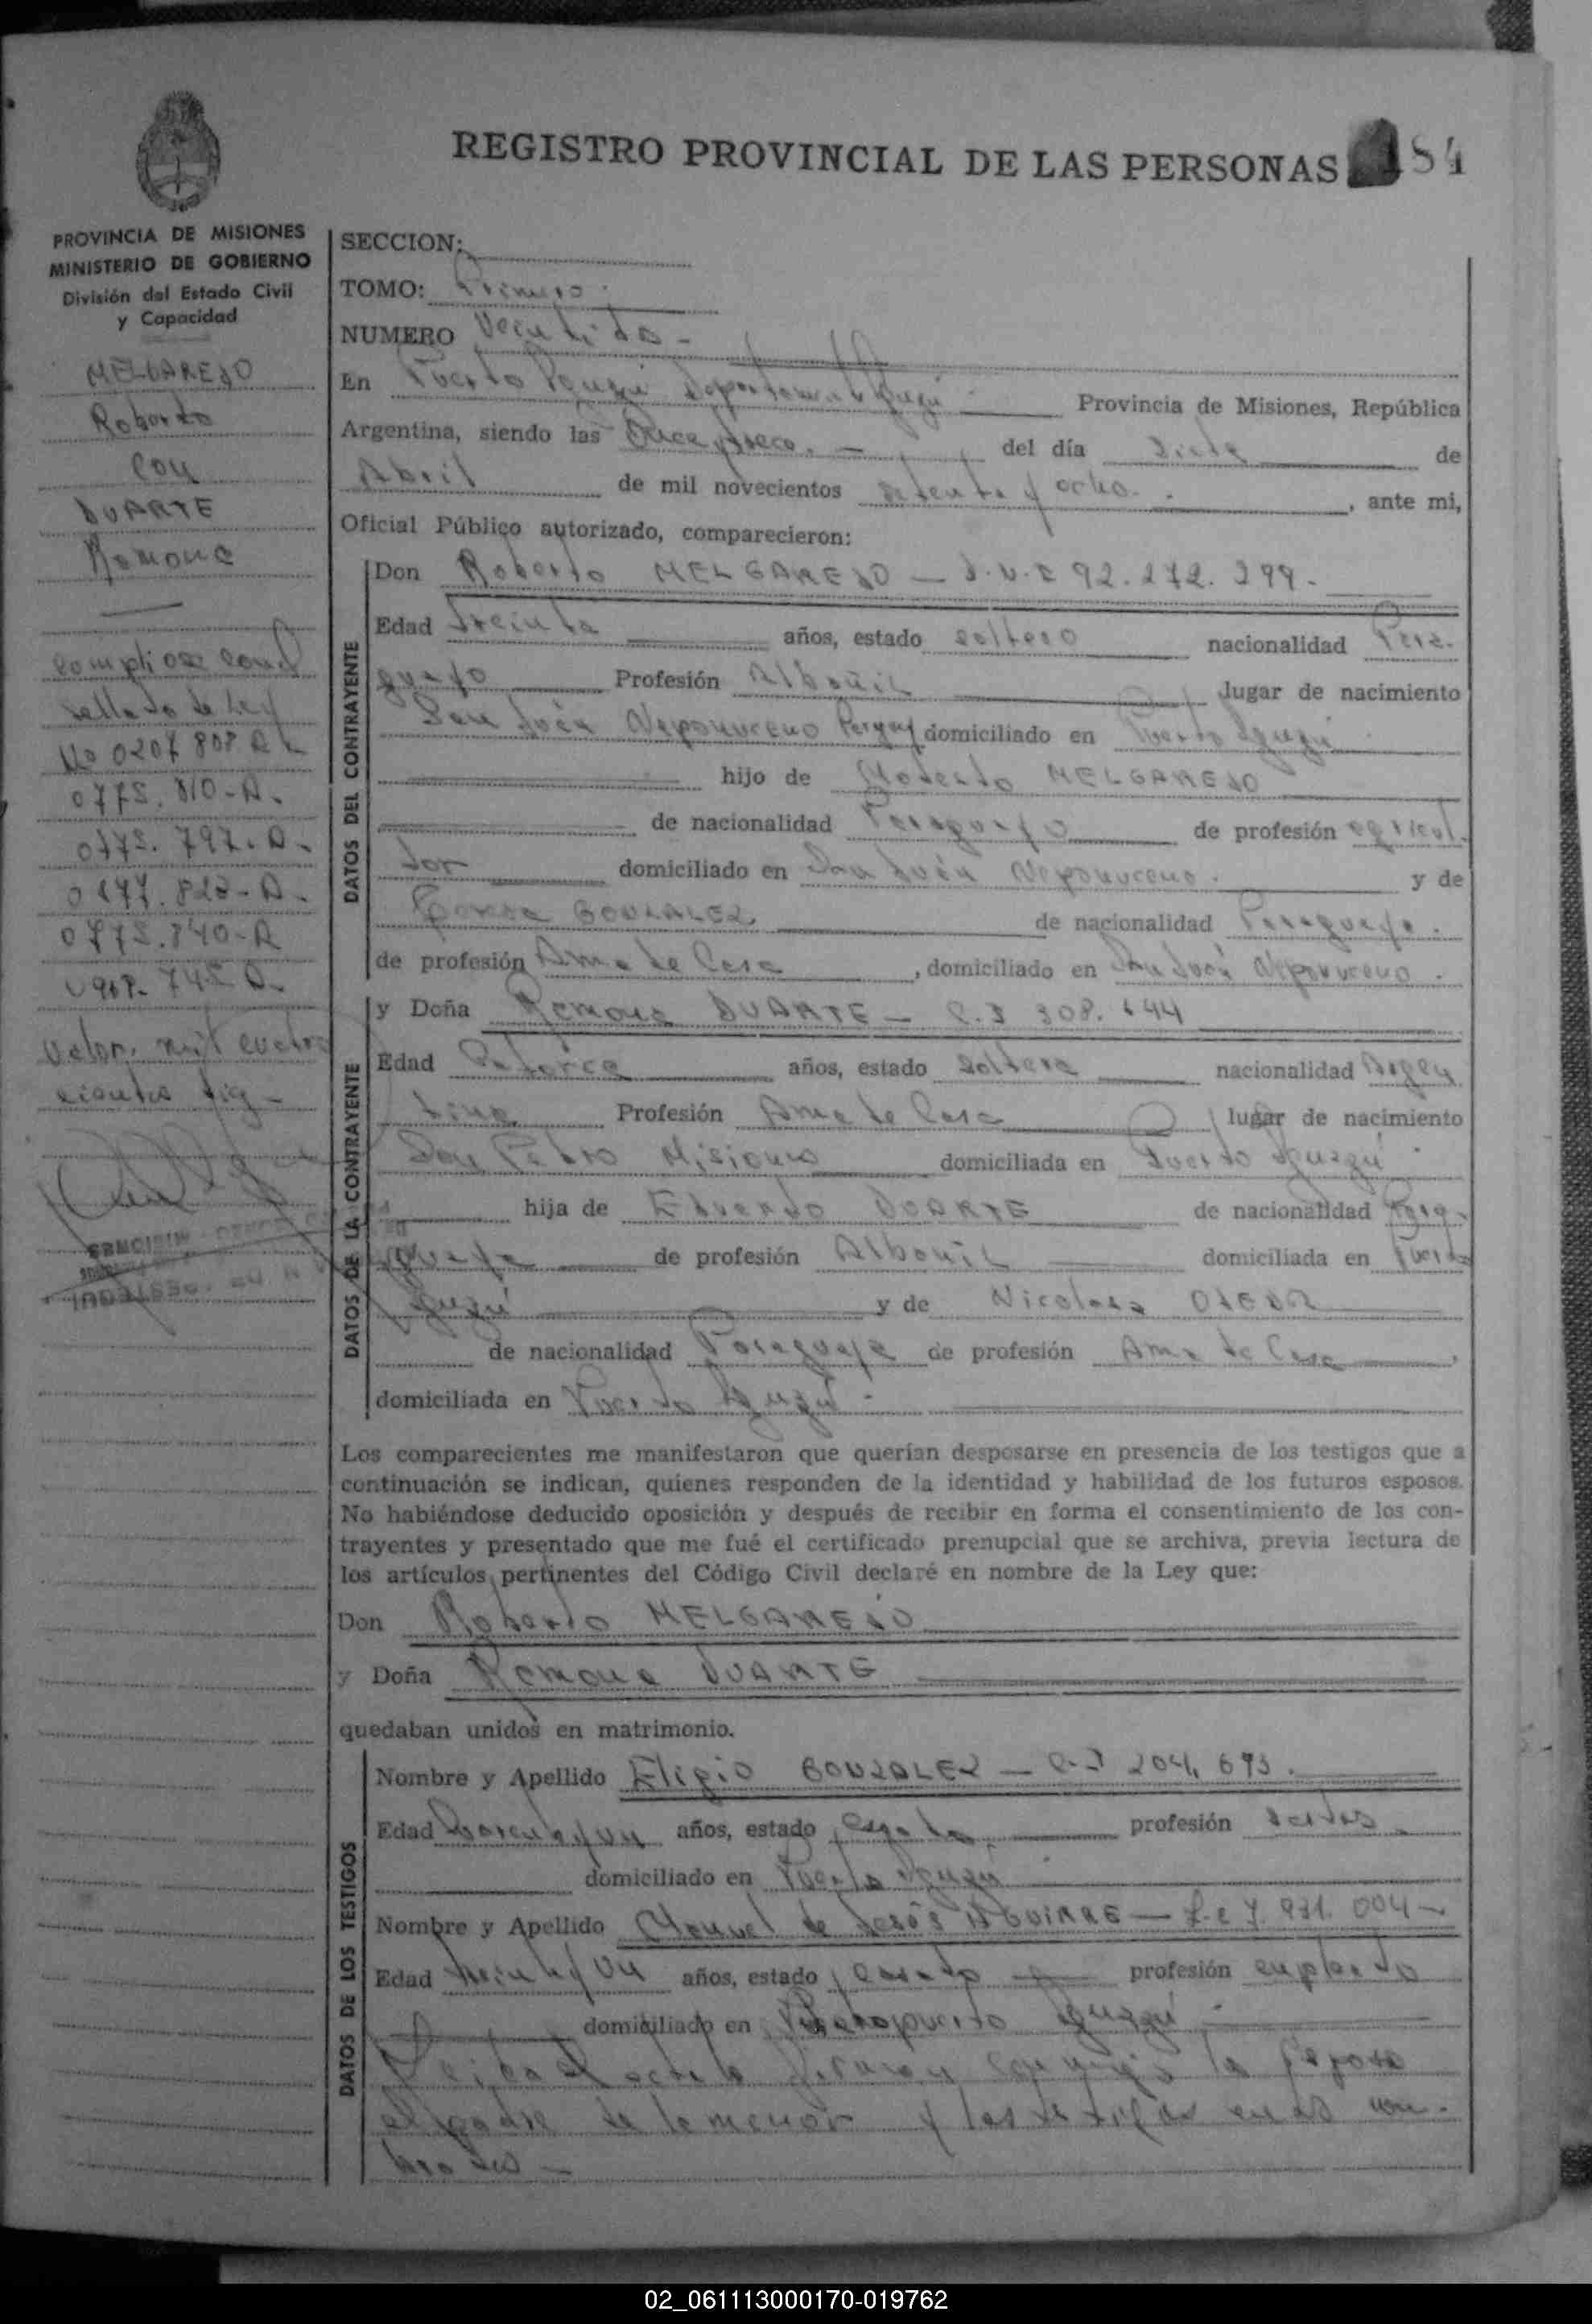 REGISTRO PROVINCIAL DE LAS PERSONAS 184
PROVINCIA DE MISIONES
MINISTERIO DE GOBIERNO
División del Estado Civil
y Capacidad
MELGAREJO
Roberto
con
DUARTE
Ramona
sellado de ley
No 0207 808. A
0775. 810-A.
0775. 797. A.
0775.840-A
SECCION:
TOMO: Primero.
NUMERO Veintidos -
En Puerto Iguazú Departamento Iguazú Provincia de Misiones, República
Argentina, siendo las Once y trece. - del día Siete de
Abril de mil novecientos setenta y ocho. , ante mi,
Oficial Público autorizado, comparecieron:
DATOS DEL CONTRAYENTE
Don Roberto MELGAREJO - D.N.I 92.272.299.
Edad Treinta años, estado soltero nacionalidad Para-
guayo Profesión Albañil lugar de nacimiento
San Juán Nepomuceno Paraguay domiciliado en Puerto Iguazú
hijo de MELGAREJO
de nacionalidad Paraguayo de profesión agricul-
tor domiciliado en San Juán Nepomuceno. y de
GONZALEZ de nacionalidad Paraguaya.
de profesión Ama de Casa , domiciliado en San Juán Nepomuceno.
DATOS DE LA CONTRAYENTE
y Doña Ramona DUARTE - C.I 308. 644
Edad Catorce años, estado Soltera nacionalidad Argen
tina Profesión Ama de Casa lugar de nacimiento
San Pedro Misiones domiciliada en Puerto Iguazú
hija de Eduardo DUARTE de nacionalidad Para-
guaya de profesión Albañil domiciliada en Puerto
Iguazú y de Nicolasa OJEDA
de nacionalidad Paraguaya de profesión Ama de Casa ,
domiciliada en Puerto Iguazú -
Los comparecientes me manifestaron que querían desposarse en presencia de los testigos que a
continuación se indican, quienes responden de la identidad y habilidad de los futuros esposos.
No habiéndose deducido oposición y después de recibir en forma el consentimiento de los con-
trayentes y presentado que me fué el certificado prenupcial que se archiva, previa lectura de
los artículos pertinentes del Código Civil declaré en nombre de la Ley que:
Don Roberto MELGAREJO
y Doña Ramona DUARTE
quedaban unidos en matrimonio.
DATOS DE LOS TESTIGOS
Nombre y Apellido Eligio GONZALEZ - C.I 204. 693.
Edad años, estado profesión
domiciliado en Puerto Iguazú
Nombre y Apellido Manuel de Jesús AGUIRRE - L.E 7. 931. 004 -
Edad treinta y un años, estado casado profesión empleado
domiciliado en Aeropuerto Iguazú
Leida el acta la firman conmigo la esposa
el padre de la menor y los testigos
02_061113000170-019762